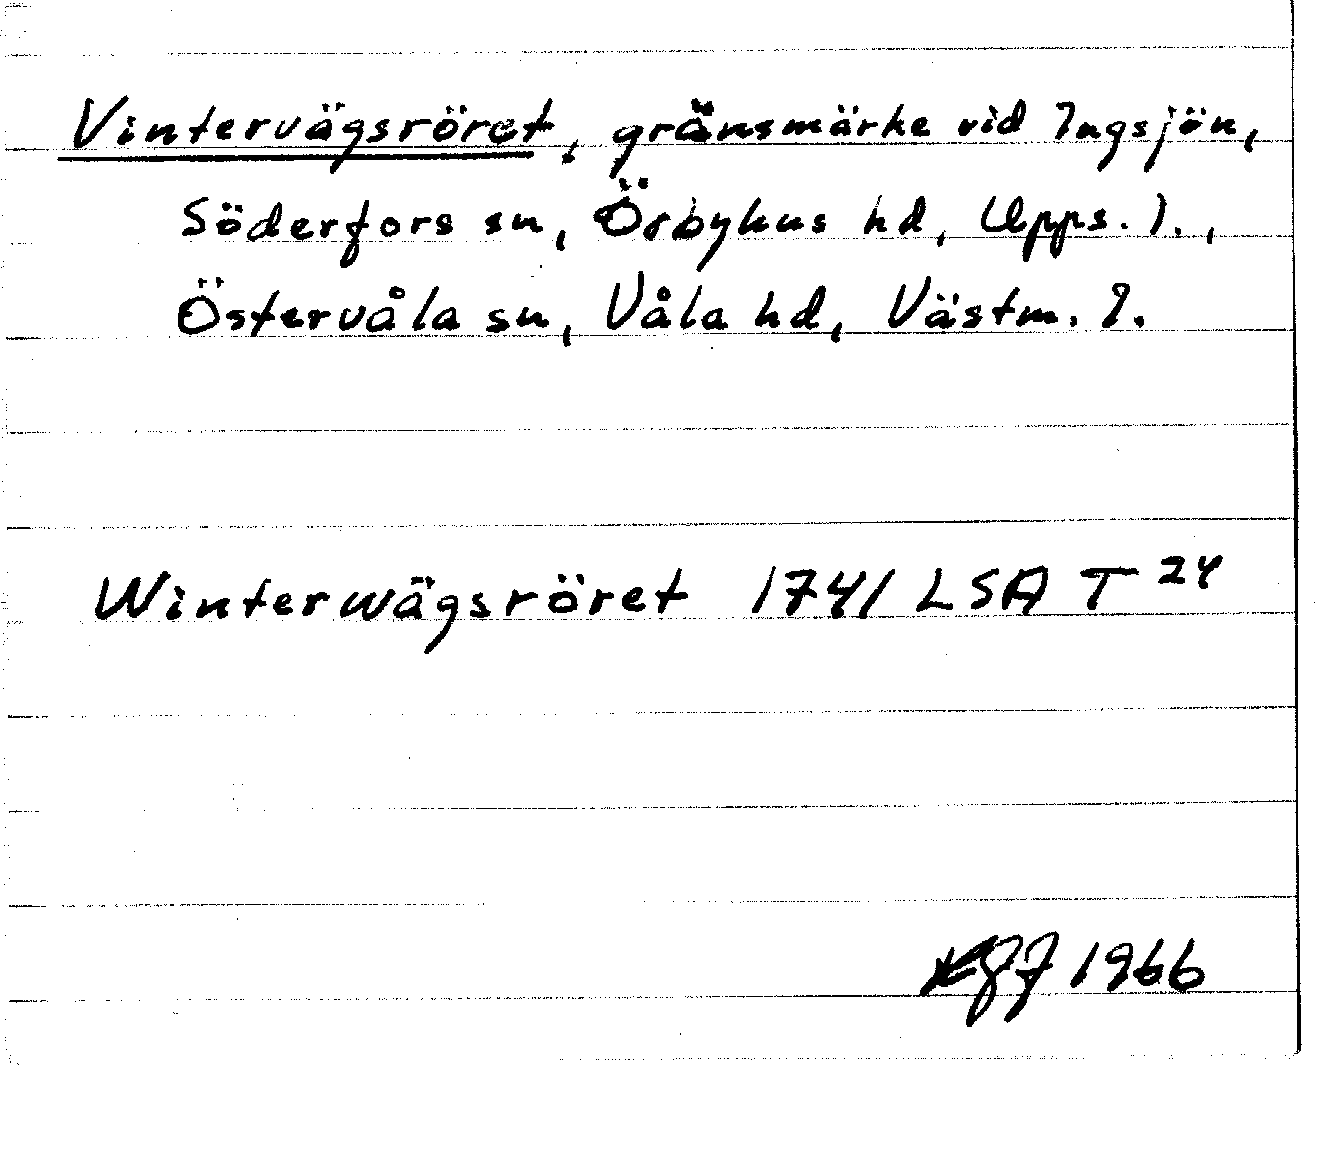 Vintervägsröret, gränsmärke vid Ingsjön,
Söderfors sn, Örbyhus hd, Upps. l.,
Östervåla sn, Våla hd, Västm. l.
Winterwägsröret 1741 LSA T 24
1966